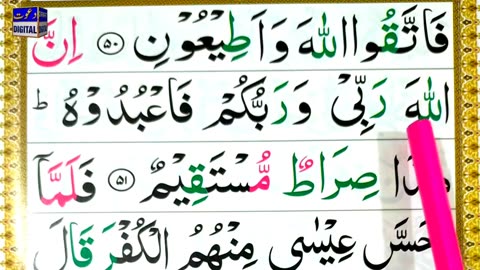 دعوت
DIGITAL
فَاتَّقُوا اللّٰهَ وَاَطِيْعُوْنِ ۝۵۰ اِنَّ
اللّٰهَ رَبِّىْ وَرَبُّكُمْ فَاعْبُدُوْهُ ؕ
صِرَاطٌ مُّسْتَقِيْمٌ ۝۵۱ فَلَمَّاۤ
عِيْسٰى مِنْهُمُ الْكُفْرَ قَالَ